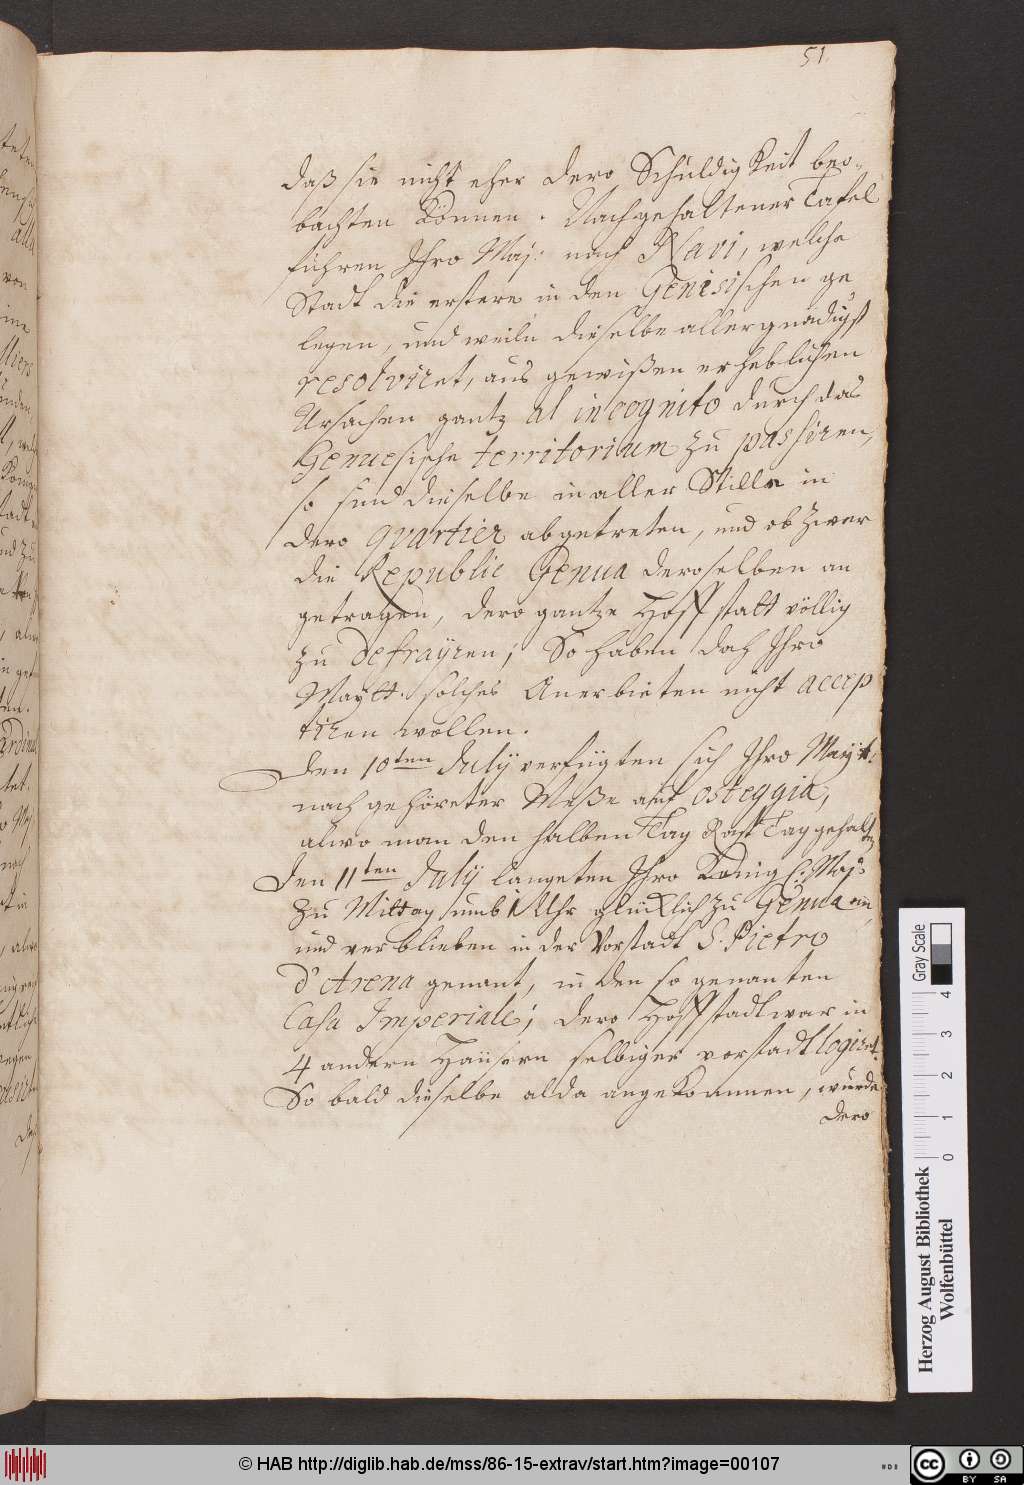 51.
daß sie nicht eher dero Schuldigkeit beo-
bachten können. Nach gehaltener Tafel
führen Ihro Maj: nach Navi, welche
Stadt die erstere in den Genisischen ge
legen, und weiln dieselbe allergnädigst
resolviret, aus gewißen erheblichen
Ursachen gantz al incognito durch das
Genuesische territorium zu passiren,
so sind dieselbe in aller Stille in
dero quartier abgetreten, und ob zwar
die Republic Genua deroselben an
getragen, dero gantze Hoffstatt völlig
zu defrayiren; So haben doch Ihro
Maytt. solches Anerbieten nicht accep
tiren wollen.
Den 10ten July verfügten sich Ihro Mayt:
nach gehöreter Meße auf Osteggia,
alwo man den halben Tag Rast Tag gehalten
Den 11ten July langeten Ihro Königl: Maj:
zu Mittag umb 1 Uhr glücklich zu Genua an,
und verblieben in der Vorstadt S. Pietro
d'Arena genant, in den so genanten
Casa Imperiale; dero Hoffstadt war in
4 andern Häüsern selbiger vorstadt logiret.
So bald dieselbe alda angekommen, wurde
dero
alla
von
ine
ardinal
Gray Scale
0 1 2 3 4
Herzog August Bibliothek
Wolfenbüttel
© HAB http://diglib.hab.de/mss/86-15-extrav/start.htm?image=00107
cc BY SA